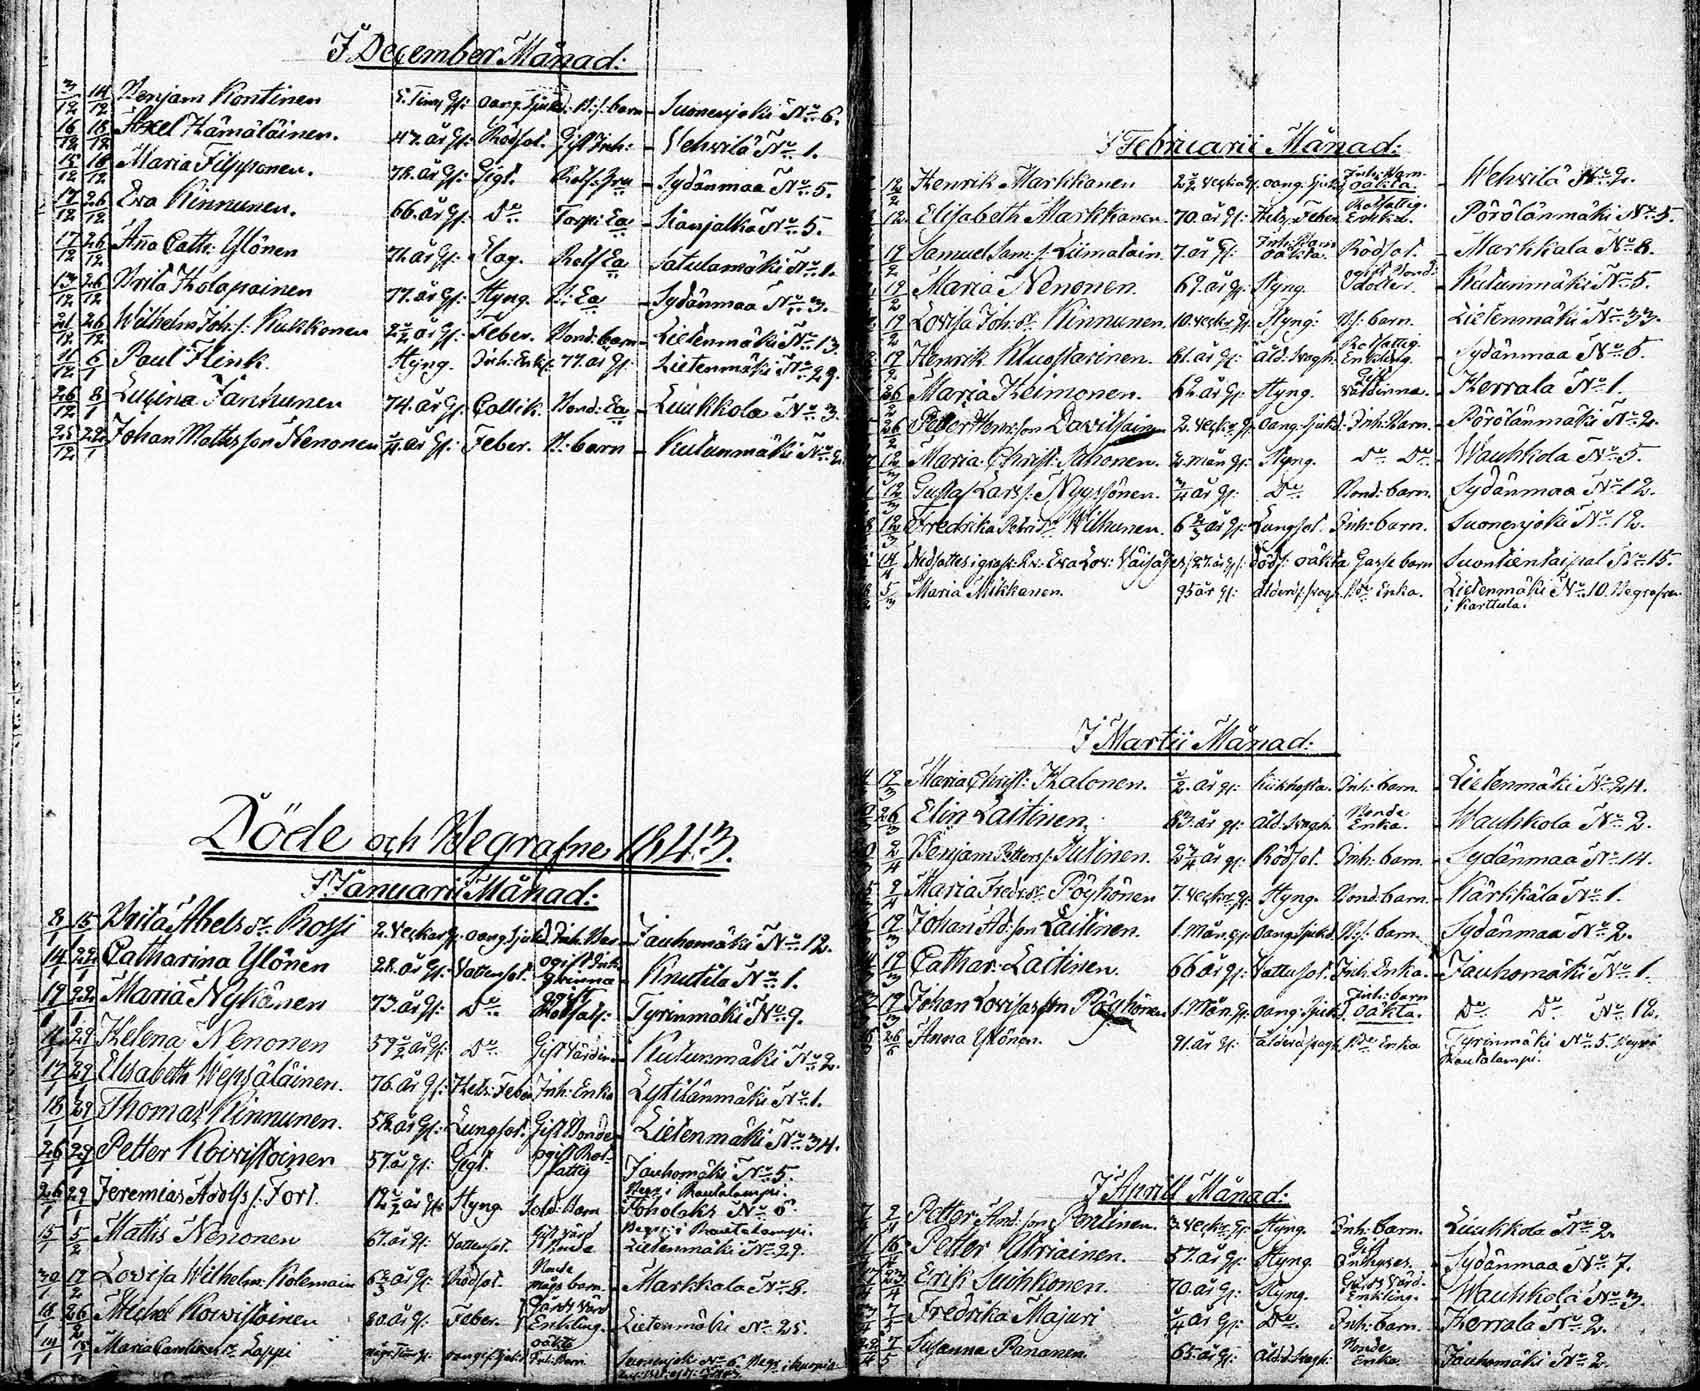 I December Månad:
3/12 14/12 Benjam Kontinen 5. Tim. gl: oang. Sjukd. B:s: barn Suonenjoki No 6.
16/12 18/12 Axel Hämäläinen. 47. år gl: Rödsot. Gift Inh: Vehvilä No 1.
15/12 18/12 Maria Filpponen. 78. år gl: Gigt. Sydänmaa No 5.
17/12 26/12 Eva Kinnunen. 66. år gl: Do Torp: Ea No 5.
17/12 26/12 Anna Cath: Ylönen år gl: Slag. Rotf Ea Satulamäki No 1.
13/12 26/12 Brita Kolapainen 77. år gl: Styng. B: Ea Sydänmaa No 3.
21/12 26/12 Wilhelm Joh: s: Kukkonen 2 1/2 år gl: Feber. Bond: barn Lietenmäki No 13.
6/1 Paul Flink. Styng. Inh: Enkl: 77. år gl: Lietenmäki No 29.
26/12 8/1 Lucina Janhunen 74. år gl: Collik. Bond: Ea Liukkola No 3.
25/12 22/1 Johan Mattsson Nenonen 1/4 år gl: Feber. B: barn Kutunmäki No 2.
Döde och Begrafne 1843.
I Januarii Månad:
8/1 15/1 Brita Abels dr. Rossi 2. Veckor gl. oang. Sjukd. Inh: Bar Jauhomäki No 12.
14/1 22/1 Catharina Ylönen 28. år gl: Vattusot. ogift Inh: qvinna Knutila No 1.
19/1 22/1 Maria Nykänen 73. år gl: Do Tyrinmäki No 9.
29/1 Helena Nenonen 59 1/2 år gl: Do Gift Värdin Kutunmäki No 2.
17/1 29/1 Elisabeth Wepsäläinen. 76. år gl: Hets: Feber Inh: Enka Lytilänmäki No 1.
18/1 29/1 Thomas Kinnunen. 58. år gl: Lungsot. Gift Bonde Lietenmäki No 34.
26/1 29/1 Petter Koivistoinen 57. år gl: Gigt. ogift Rot-fattig Jauhomäki No 5. Begr: i Rautalampi.
26/1 29/1 Jeremias Adolfs s: Fort. 12 1/2 år gl: Styng. Sold: Barn No 6. Begr: i Rautalampi.
15/1 5/2 Mattis Nenonen 67. år gl: Vattusot. Lietenmäki No 29.
30/1 12/2 Lovisa Wilhelm: Kolemain 6 2/3 år gl: Rödsot. barn. Markkala No 8.
18/1 26/2 Michel Koivistoinen 80. år gl: Feber. Gårds Värd Enkling. Lietenmäki No 25.
14/1 15/1 Maria Carolina dr. Lappi oang. sjukd. oäkta Inh: Barn Suonenjoki No 6. Begr: i Kuopio
I Februarii Månad:
12/2 Henrik Markkanen 2 1/2 veckor gl. oang. sjukd. Inh: Barn oäkta. Wehvilä No 2.
12/2 Elisabeth Markkanen. 70. år gl: Hets: Feber. Rotfattig. Enka. Pörölänmäki No 5.
12/2 Samuel Sam: s: Liimatain. 7. år gl: Inh: Barn oäkta. Rödsot. Markkala No 8.
19/2 Maria Nenonen. 69. år gl: Styng. ogift Bond: dotter. Kutunmäki No 5.
19/2 Lovisa Joh: dr. Kinnunen. 10. veckor gl: Styng. Bs: barn. Lietenmäki No 33.
19/2 Henrik Kluostarinen. 81. år gl: Åld: svagh: Rotfattig. Enkling. Sydänmaa No 5.
26/2 Maria Heimonen. 62. år gl: Styng. Gift värdinna. Kerrala No 1.
26/2 Petter Henrikson Davitsain 2. veckor gl: oang. sjukd. Inh: Barn. Pörölänmäki No 2.
12/3 Maria Christ: Suhonen. 2. mån. gl: Styng. Do Do Wauhkola No 5.
12/3 Gustaf Lars s: Nyyssönen. 3/4 år gl: Do Bond: barn. Sydänmaa No 12.
12/3 Fredrika Petri dr. Wilhunen. 6 2/3 år gl: Lungsot. Inh: barn. Suonenjoki No 12.
14/4 Nedsattes i graf: Eva Lov: Väisäses oäkta barn Suontientaipal No 15.
5/3 Maria Mikkanen. 95 år gl: ålderd: svagh: Enka. Lietenmäki No 10. Begrafven i Karttula.
I Martii Månad:
12/3 Maria Christ: Halonen. 1/2. år gl: Kikhosta. Inh: barn. Lietenmäki No 24.
26/3 Elin Laitinen. 83. år gl: Åld: svagh. Bonde Enka. Wauhkola No 2.
2/4 Benjam Petters s: Jutinen. 2 3/4 år gl: Rödsot. Inh: barn. Sydänmaa No 14.
2/4 Maria Fredr: dr. Pöyhönen 7. veckor gl: Styng. Bond: barn. Kärkkälä No 1.
12/3 Johan Ad: son Laitinen. 1. Mån. gl: oang. sjukd. barn. Sydänmaa No 2.
19/3 Cathar: Laitinen. 66 år gl: Vattusot. Inh: Enka. Jauhomäki No 1.
19/3 Johan Lovisas son Pöyhönen 1. Mån. gl: oang. Sjuk. Inh: barn oäkta. Do Do No 12.
Anna Ylönen. 91. år gl: ålderd: svagh. Enka Tyrinmäki No 5. Rautalampi.
I Aprill Månad:
2/4 Petter And: son Pentinen. 3. veckor gl: Styng. Inh: barn. Liukkola No 2.
16/4 Petter Utriainen. 57. år gl: Styng. Gift Inhyses. Sydänmaa No 7.
23/4 Erik Suihkonen. 70. år gl: Styng. Gårds Värd. Enkling. Wauhkola No 3.
Fredrika Majuri 1/4 år gl: Do Inh: barn. Kerrala No 2.
22/4 7/5 Susanna Pananen. 65. år gl: Åld: svagh: Bonde Enka. Jauhomäki No 2.